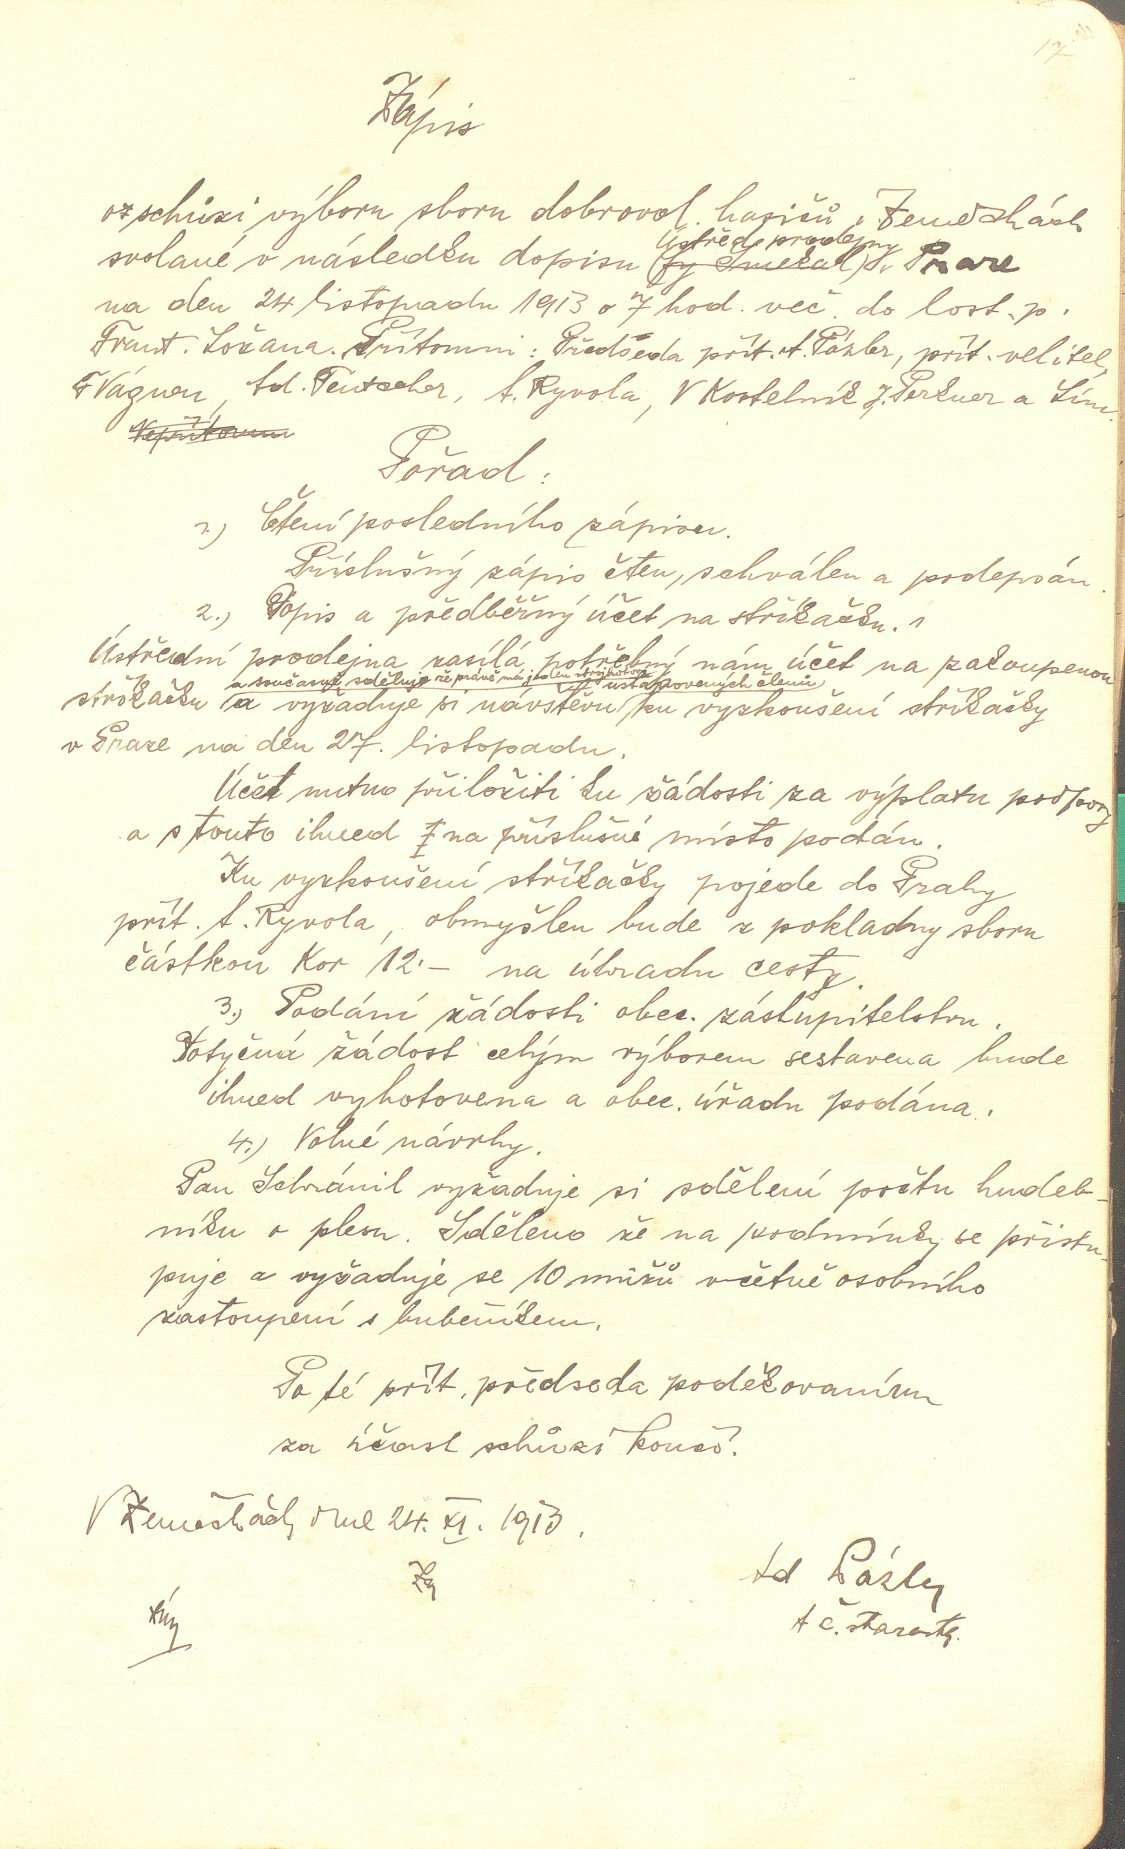 17
Zápis
o schůzi výboru sboru dobrovol. hasičů v Zeměchách
Ústřed. prodejny
svolané v následku dopisu (fy Smekal) v Praze
na den 24 listopadu 1913 o 7 hod. več. do host. p.
Frant. Ložana. Přítomni: Předseda přít. A. Pázler, přít. velitel,
F Vágner, Ad. Teutscher, A. Ryvola, V Kostelník J. Perkner a Sím.
Nepřítomni
Pořad:
1.) Čtení posledního zápisu.
Příslušný zápis čten, schválen a podepsán.
2.) Dopis a předběžný účet na stříkačku.
Ústřední prodejna zasílá potřebný nám účet na zakoupenou
a současně sděluje že právě má jednu ustanovených členů
stříkačku a vyžaduje si návštěvu ku vyzkoušení stříkačky
v Praze na den 27. listopadu.
Účet nutno přiložiti ku žádosti za výplatu podpory
a s touto ihned na příslušné místo podán.
Ku vyzkoušení stříkačky pojede do Prahy
přít. A. Ryvola, obmyšlen bude z pokladny sboru
částkou Kor 12.– na úhradu cesty.
3.) Podání žádosti obec. zastupitelstvu.
Dotyčná žádost celým výborem sestavena bude
ihned vyhotovena a obec. úřadu podána.
4.) Volné návrhy.
Pan Schránil vyžaduje si sdělení počtu hudeb-
níku o plesu. Sděleno že na podmínky se přistu-
puje a vyžaduje se 10 mužů včetně osobního
zastoupení s bubeníkem.
Po té přít. předseda poděkovaním
za účast schůzi končí.
V Zeměchách dne 24. XI. 1913.
Ad Pázler
t č. starosta.